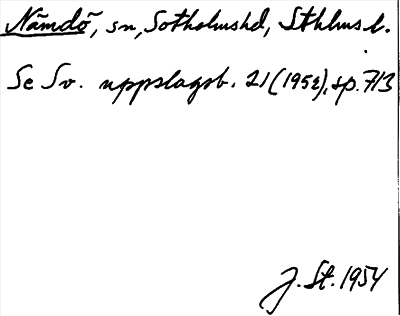 Nämdö, sn, Sotholmshd, Sthlms l.
Se Sv. uppslagsb. 21 (1952), sp. 713
J. St. 1954